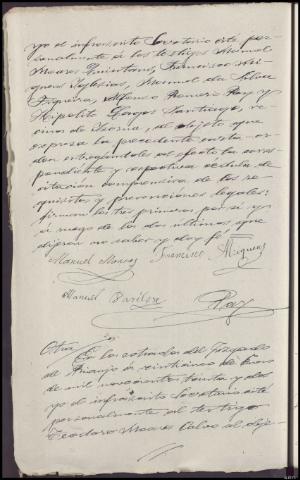 yo el infrascrito Secretario cité per-
sonalmente a los testigos Manuel
Moares Quintans, Francisco Mi-
gueus Iglesias, Manuel da Silva
Figueira, Alfonso Romero Rey y
Hipólito Borgos Santiago, ve-
cinos de al objeto que
expresa la precedente carta or-
den entregándoles al efecto la corres-
pondiente y respectiva cédula de
citación comprensiva de los re-
quisitos y prevenciones legales:
firman los tres primeros por si y
a ruego de los dos últimos que
dijeron no saber y doy fé,
Manuel Moares Francisco Migueus
Manuel Rey
Otra En los estrados del Juzgado
de Rianjo a veintinueve de Enero
de mil novecientos treinta y dos
yo el infrascrito Secretario cité
personalmente al testigo
Teodoro Moares Calvo al obje-